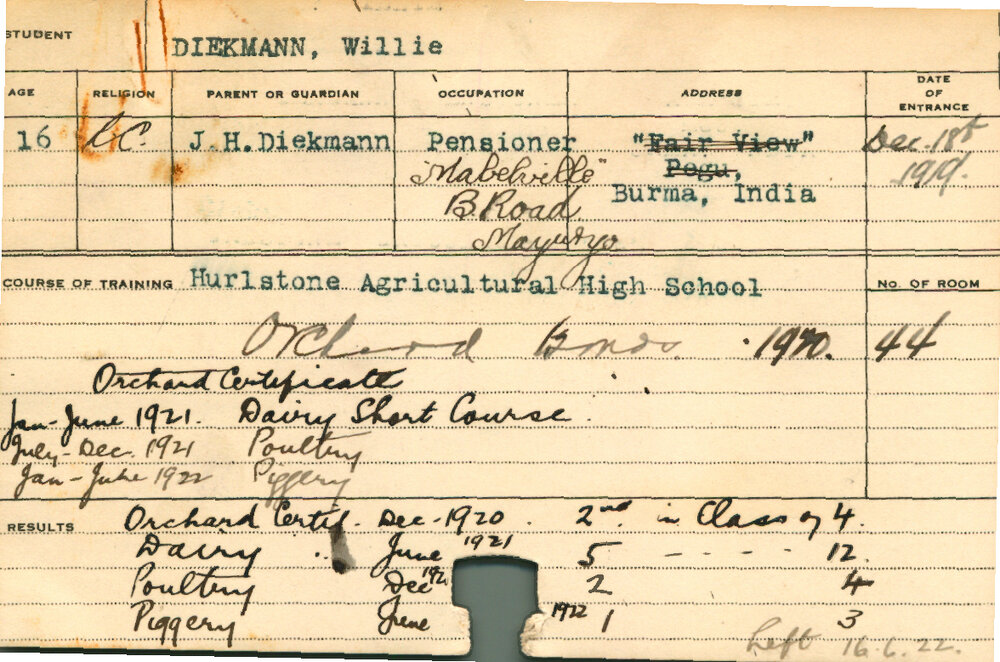 STUDENT DIEKMANN, Willie
AGE RELIGION PARENT OR GUARDIAN OCCUPATION ADDRESS DATE OF ENTRANCE
16 R.C. J.H.Diekmann Pensioner "Fair View" Dec. 18th
"Mabelville" Pegu, 1919.
B. Road Burma, India
Maymyo
COURSE OF TRAINING Hurlstone Agricultural High School NO. OF ROOM
Orchard 1920. 44
Orchard Certificate
Jan-June 1921. Dairy Short Course.
July-Dec. 1921 Poultry
Jan-June 1922 Piggery
RESULTS Orchard Certif. Dec-1920. 2nd in Class of 4.
Dairy .. June 1921 5 - - - - - 12.
Poultry Dec 192 2 4
Piggery June 1922 1 3
Left 16.6.22.